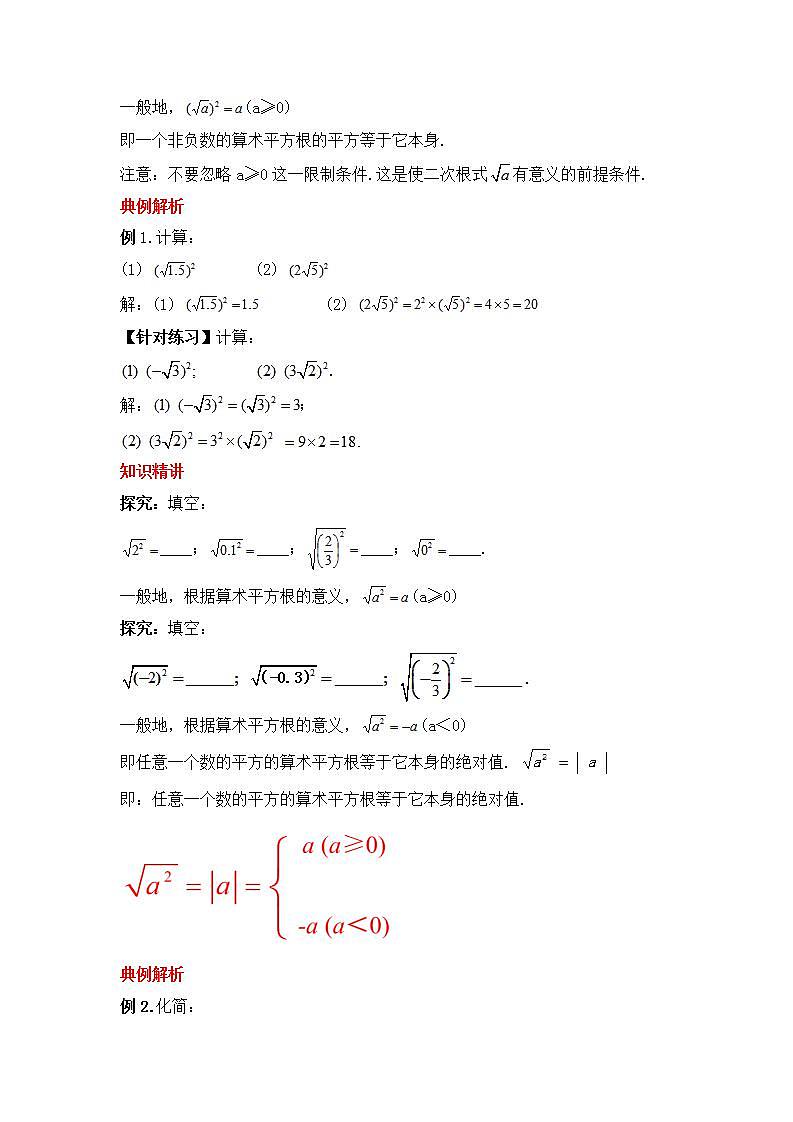 一般地，(√a)²=a(a≥0)
即一个非负数的算术平方根的平方等于它本身.
注意：不要忽略 a≥0 这一限制条件.这是使二次根式√a有意义的前提条件.
典例解析
例1.计算：
(1) (√1.5)² (2) (2√5)²
解：(1) (√1.5)²=1.5 (2) (2√5)²=2²×(√5)²=4×5=20
【针对练习】计算：
(1) (−√3)²; (2) (3√2)².
解：(1) (−√3)²=(√3)²=3;
(2) (3√2)²=3²×(√2)² =9×2=18.
知识精讲
探究：填空：
√(2²)=____；√(0.1²)=____；√((2/3)²)=____；√(0²)=____.
一般地，根据算术平方根的意义，√(a²)=a(a≥0)
探究：填空：
√((−2)²)=______；√((−0.3)²)=______；√((−2/3)²)=______.
一般地，根据算术平方根的意义，√(a²)=−a(a＜0)
即任意一个数的平方的算术平方根等于它本身的绝对值. √(a²)=|a|
即：任意一个数的平方的算术平方根等于它本身的绝对值.
√(a²)=|a|={ a (a≥0)
-a (a＜0)
典例解析
例2.化简：